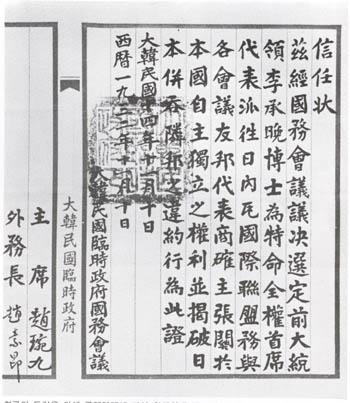 信任狀
茲經國務會議議決選定前大統
領李承晚博士為特命全權首席
代表派往日內瓦國際聯盟務與
各會議友邦代表商確主張關於
本國自主獨立之權利並揭破日
本併吞隣邦之違約行為此證
大韓民國十四年十一月十日
西曆一九三二年十一月十日
大韓民國臨時政府國務會議
大韓民國臨時政府
主席 趙琬九
外務長 趙素昂